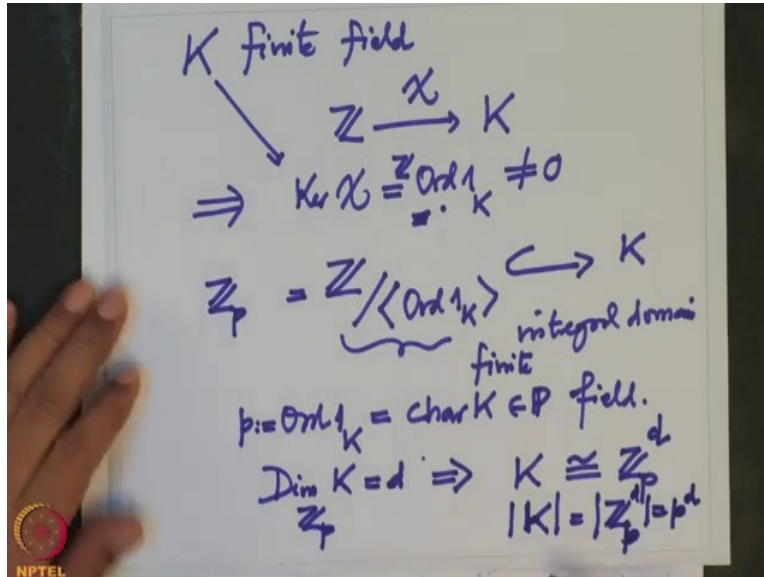 K finite field
ℤ —χ→ K
⇒ Ker χ = ℤ·Ord 1_K ≠ 0
ℤ_p = ℤ/⟨Ord 1_K⟩ ↪ K
integral domain
finite
p := Ord 1_K = char K ∈ ℙ field.
Dim_{ℤ_p} K = d ⇒ K ≅ ℤ_p^d
|K| = |ℤ_p^d| = p^d
NPTEL